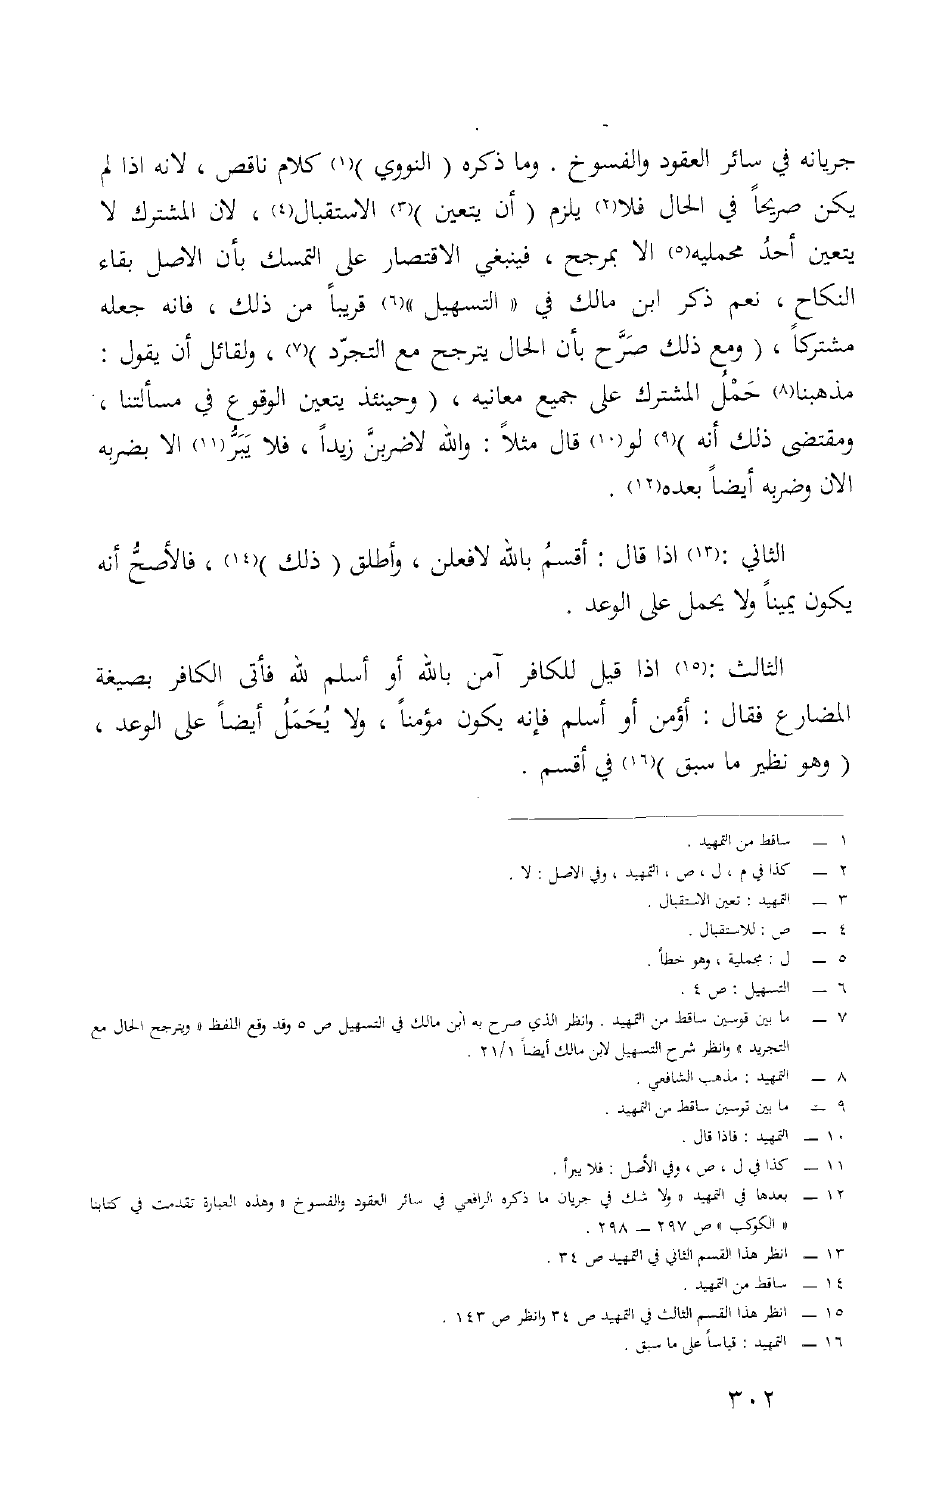 جريانه في سائر العقود والفسوخ . وما ذكره ( النووي )(١) كلام ناقص ، لانه اذا لم
يكن صريحاً في الحال فلا(٢) يلزم ( أن يتعين )(٣) الاستقبال(٤) ، لان المشترك لا
يتعين أحدُ محمليه(٥) الا بمرجح ، فينبغي الاقتصار على التمسك بأن الاصل بقاء
النكاح ، نعم ذكر ابن مالك في « التسهيل »(٦) قريباً من ذلك ، فانه جعله
مشتركاً ، ( ومع ذلك صَرَّح بأن الحال يترجح مع التجرّد )(٧) ، ولقائل أن يقول :
مذهبنا(٨) حَمْلُ المشترك على جميع معانيه ، ( وحينئذ يتعين الوقوع في مسألتنا ،
ومقتضى ذلك أنه )(٩) لو(١٠) قال مثلاً : والله لاضربنَّ زيداً ، فلا يَبَرُّ(١١) الا بضربه
الان وضربه أيضاً بعده(١٢) .
الثاني :(١٣) اذا قال : أقسمُ بالله لافعلن ، وأطلق ( ذلك )(١٤) ، فالأصحُّ أنه
يكون يميناً ولا يحمل على الوعد .
الثالث :(١٥) اذا قيل للكافر آمن بالله أو أسلم لله فأتى الكافر بصيغة
المضارع فقال : أؤمن أو أسلم فإنه يكون مؤمناً ، ولا يُحَمَلُ أيضاً على الوعد ،
( وهو نظير ما سبق )(١٦) في أقسم .
١ — ساقط من التمهيد .
٢ — كذا في م ، ل ، ص ، التمهيد ، وفي الاصل : لا .
٣ — التمهيد : تعين الاستقبال .
٤ — ص : للاستقبال .
٥ — ل : مجملية ، وهو خطأ .
٦ — التسهيل : ص ٤ .
٧ — ما بين قوسين ساقط من التمهيد . وانظر الذي صرح به ابن مالك في التسهيل ص ٥ وقد وقع اللفظ « ويترجح الحال مع
التجريد » وانظر شرح التسهيل لابن مالك أيضاً ٢١/١ .
٨ — التمهيد : مذهب الشافعي .
٩ — ما بين قوسين ساقط من التمهيد .
١٠ — التمهيد : فاذا قال .
١١ — كذا في ل ، ص ، وفي الأصل : فلا يبرأ .
١٢ — بعدها في التمهيد « ولا شك في جريان ما ذكره الرافعي في سائر العقود والفسوخ » وهذه العبارة تقدمت في كتابنا
« الكوكب » ص ٢٩٧ — ٢٩٨ .
١٣ — انظر هذا القسم الثاني في التمهيد ص ٣٤ .
١٤ — ساقط من التمهيد .
١٥ — انظر هذا القسم الثالث في التمهيد ص ٣٤ وانظر ص ١٤٣ .
١٦ — التمهيد : قياساً على ما سبق .
٣٠٢